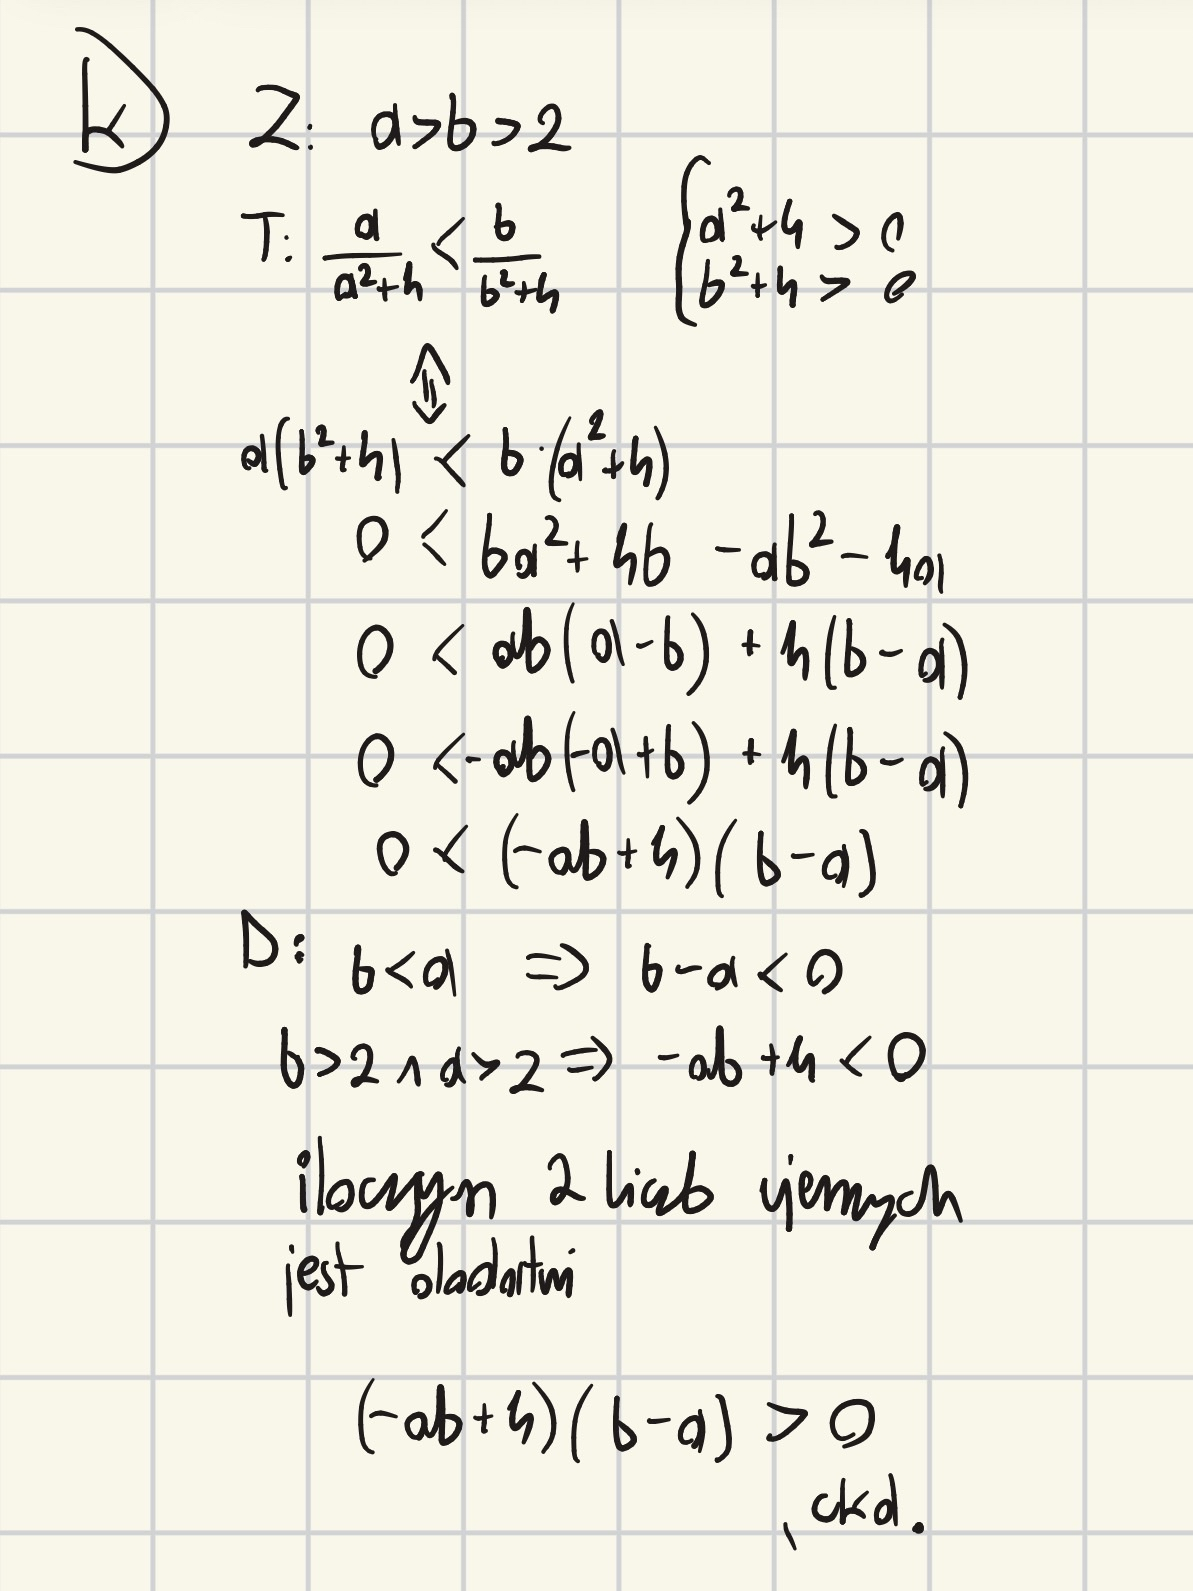 k) Z: a>b>2
T: a/(a²+4) < b/(b²+4) { a²+4 > 0
b²+4 > 0
⇕
a(b²+4) < b·(a²+4)
0 < ba²+4b -ab²-4a
0 < ab(a-b) + 4(b-a)
0 <-ab(-a+b) + 4(b-a)
0 < (-ab+4)(b-a)
D: b<a ⇒ b-a<0
b>2 ∧ a>2 ⇒ -ab+4<0
iloczyn 2 liczb ujemnych
jest dodatni
(-ab+4)(b-a) > 0
, ckd.